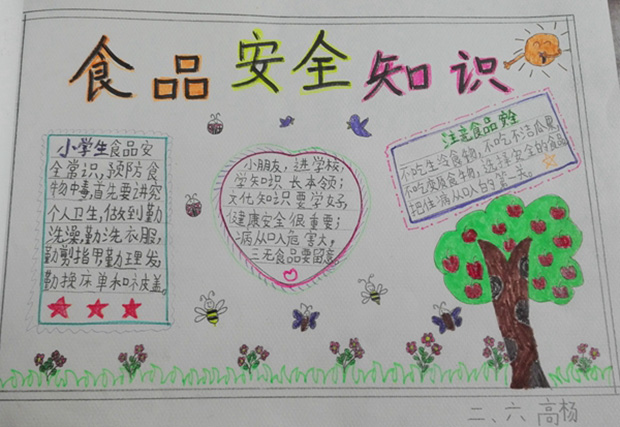 食品安全知识
小学生食品安
全常识,预防食
物中毒,首先要讲究
个人卫生,做到勤
洗澡,勤洗衣服,
勤剪指甲,勤理发,
勤换床单和被盖。
小朋友,进学校,
学知识 长本领;
文化知识要学好,
健康安全很重要;
病从口入危害大,
三无食品要留意。
注意食品安全
不吃生冷食物,不吃不洁瓜果
不吃变质食物,选择安全的食品
把住病从口入的第一关。
二、六 高杨